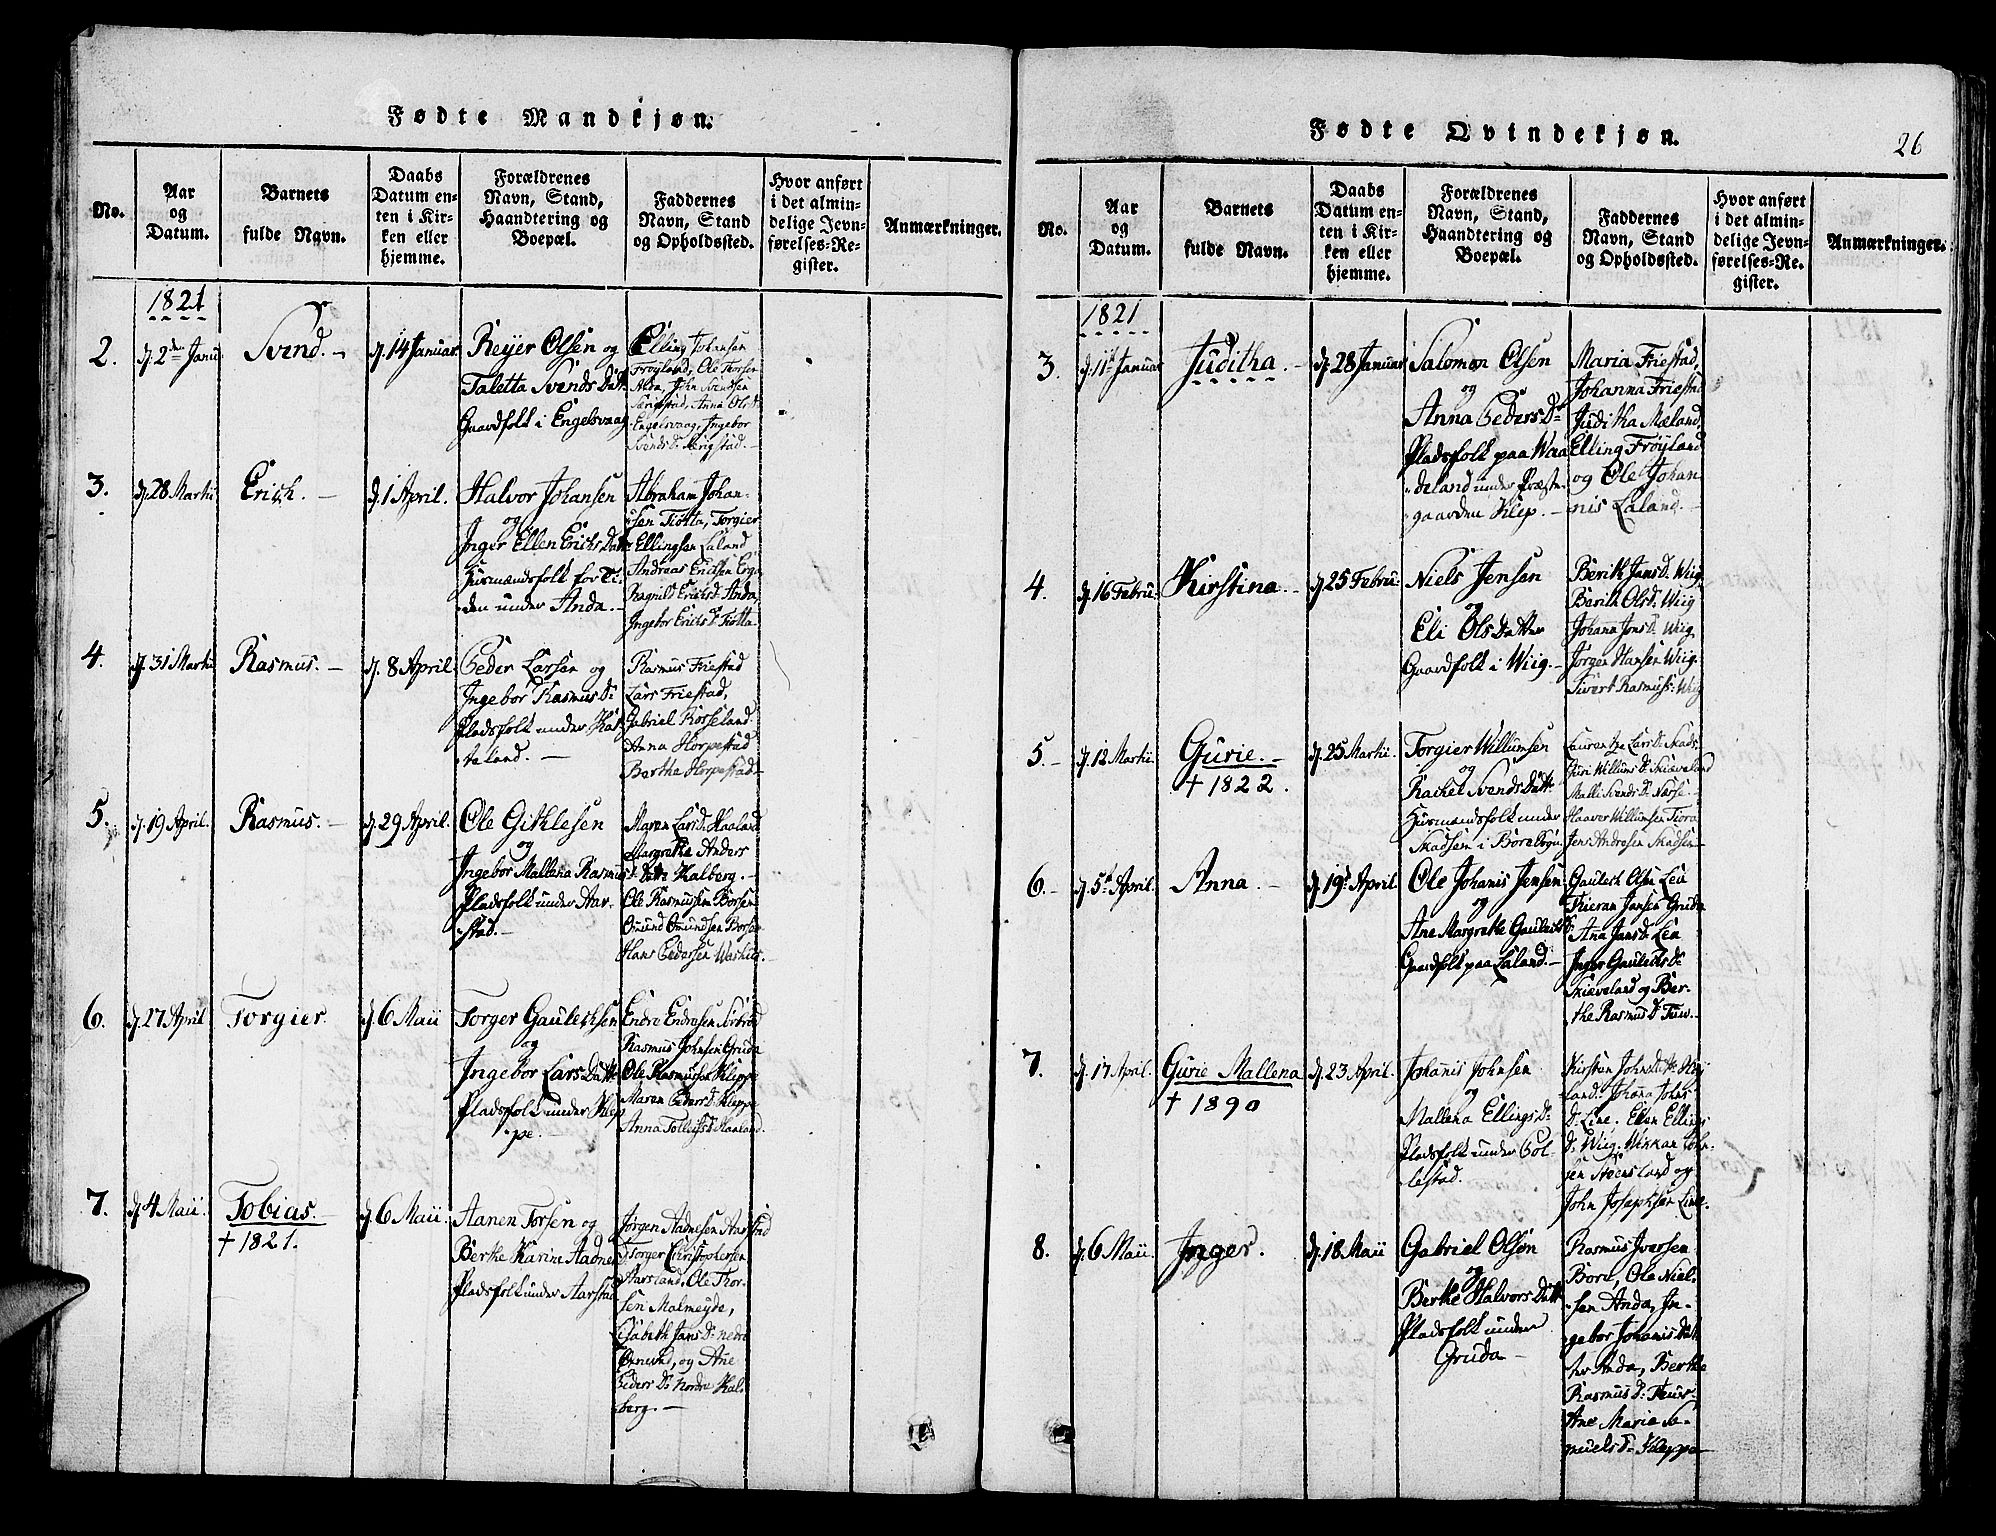 Fødte Mandkjøn.
No.
Aar
og
Datum.
Barnets
fulde Navn.
Daabs
Datum en-
ten i Kir-
ken eller
hjemme.
Forældrenes
Navn, Stand,
Haandtering og
Boepæl.
Faddernes
Navn, Stand
og Opholdssted.
Hvor anført
i det almin-
delige Jevn-
førelses-Re-
gister.
Anmærkninger.
1821
2.
d. 2den Janu:
Svend. -
d. 14 Januar.
Reijer Olsen og
Taletta Svends Datt:
Gaardfolk i Engelsvaag
Elling Johansen
Frøyland, Ole Thorsen
Alda, John Svendsen
Særigstad, Anna Ols D:
Engelsvaag, Ingebor
Svends D: Særigstad. -
3.
d. 28 Martii
Erich. -
d. 1 April.
Halvor Johansen
og
Inger Ellen Erichs Datt:
Huusmændsfolk for Ti-
den under Anda. -
Abraham Johan-
sen Tiøtta, Torgier
Ellingsen Laland
Andreas Ericsen Erga
Ragnild Erichs D: Anda
Ingebor Erichs D: Tiøtta
4.
d. 31 Martii
Rasmus. -
d. 8 April.
Peder Larsen og
Ingebor Rasmus D:
Pladsfolk under Kas-
taland. -
Rasmus Friestad
Lars Friestad,
Gabriel Rosseland
Anna Horpestad
Berthe Horpestad -
5.
d. 19 April.
Rasmus. -
d. 29 April.
Ole Githlesen
og
Ingebor Mallena Rasmus
Pladsfolk under Aar-
stad. -
Maren Lars D: Haaland
Margrethe Anders
Datte Kalberg. -
Ole Rasmussen Borsen
Omund Omundsen Borsen
Hans Pedersen Washus.
6.
d. 27 April
Torgier.
d. 6 Maii
Torger Gautechsen
og
Ingebor Lars Datt:
Pladsfolk under Klep
pe. -
Endre Endresen Sørbrød
Rasmus Johnsen Gruda
Ole Rasmussen Kleppe
Maren Peders D: Kleppe
Anna Tollefs D: Haaland.
7.
d. 4 Maii.
Tobias.
† 1821.
d. 6 Maii
Aanen Torsen og
Berthe Karine Aadnes D:
Pladsfolk under Aarstad
Jørgen Aadnesen Aarstad
Torger Christophersen
Aarsland, Ole Thor-
sen Malmeyde,
Elisabeth Jans D: nedre
Øxnevad, og Ane
Peders D: Nordre Kal-
berg. -
Fødte Qvindekjøn.
26
No.
Aar
og
Datum.
Barnets
fulde Navn.
Daabs
Datum en-
ten i Kir-
ken eller
hjemme.
Forældrenes
Navn, Stand,
Haandtering og
Boepæl.
Faddernes
Navn, Stand
og Opholdssted.
Hvor anført
i det almin-
delige Jevn-
førelses-Re-
gister.
Anmærkninger.
1821
3.
d. 11te Januar
Juditha. -
d. 28 Januar
Salomon Olsen
og
Anna Peders D:
Pladsfolk paa Waa
deland under Præste-
gaarden Klep. -
Maria Friestad,
Johanna Friestad
Juditha Mæland,
Elling Frøyland
og Ole Johan
nis Laland. -
4.
d. 16 Febru:
Kirstina. -
d. 25 Febru:
Niels Jensen
og
Eli Ols Datter
Gaardfolk i Wiig. -
Berith Jans D: Wiig
Berith Ols D: Wiig
Johana Jons D: Wiig
Jørgen Hansen Wiig.
Sivert Rasmuss: Wiig
5. -
d. 12 Martii.
Gurie. -
† 1822.
d. 25 Martii.
Torgier Willumsen
og
Rachel Svends Datt:
Huusmændsfolk under
Skadsem i Bore Sogn
Laurentze Lars D: Skads,
Guri Willums D: Skiæveland
Malli Svends D: Norse -
Haaver Willumsen Tiora
Jens Andresen Skadsem
6. -
d. 5te April.
Anna. -
d. 19de April.
Ole Johanis Jensen
og
Ane Margrethe Gautechs D:
Gaardfolk paa Laland. -
Gauteth Olsen Leu
Kieran Jansen Gruda
Ana Jans D: Leu
Inger Gautechs D:
Skiæveland og Ber-
the Rasmus D: Tuw. -
7.
d. 17 April.
Gurie Mallena
† 1890
d. 23 April.
Johanis Johnsen
og
Mallena Ellings D:
Pladsfolk under Pol-
lestad.
Kirsten Johns Datt: Høy
land. Johana Johns
D: Line. Ellen Ellings
D: Wiig. Håkan John-
sen Steensland og
John Josephsen Line.
8.
d. 6 Maii.
Inger.
d. 18 Maii
Gabriel Olsøn
og
Berthe Halvors Datt:
Pladsfolk under
Gruda -
Rasmus Iversen
Bore, Ole Niel-
sen Anda, In-
gebor Johanis Dat-
ter Anda, Berthe
Rasmus D: Tuw
Ane Maria Sa-
muels D: Kleppe -